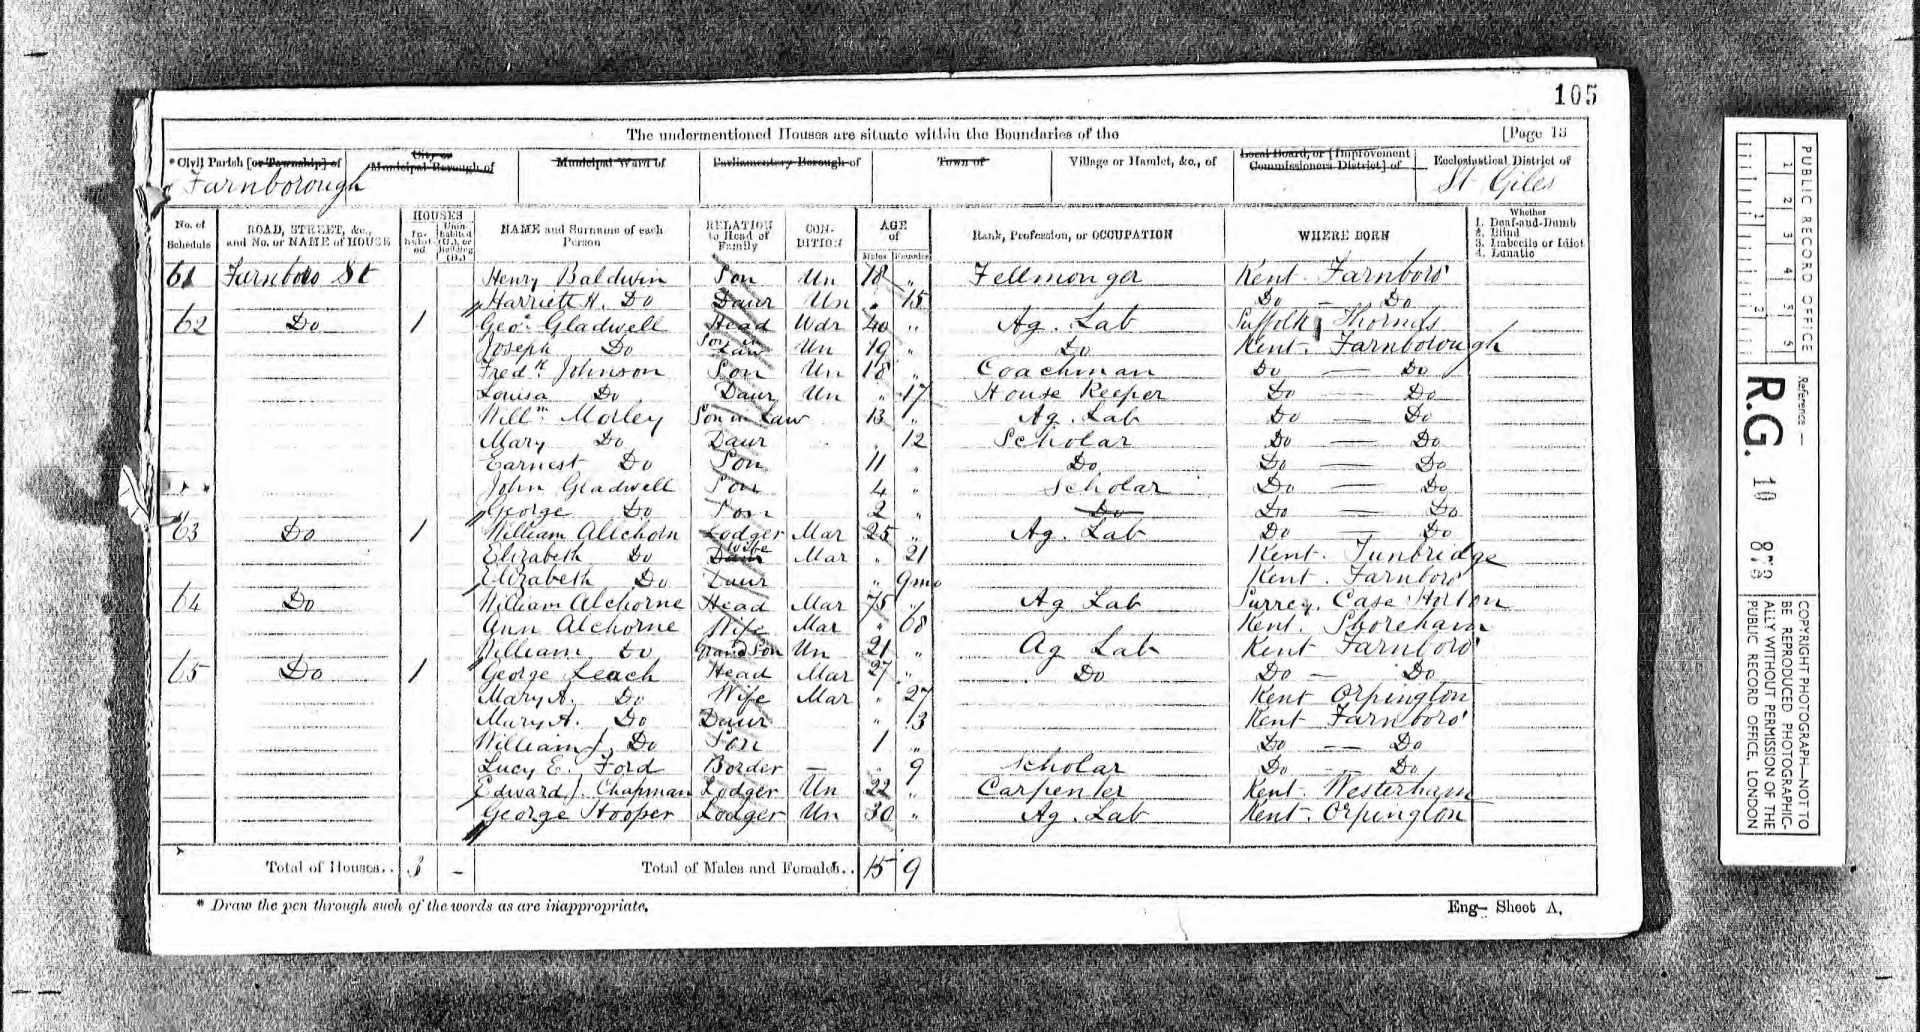 105
The undermentioned Houses are situate within the Boundaries of the [Page 13
*Civil Parish [or Township] of City or Municipal Borough of Municipal Ward of Parliamentary Borough of Town of Village or Hamlet, &c., of Local Board, or [Improvement Commissioners District] of Ecclesiastical District of
Farnborough St Giles
No. of Schedule ROAD, STREET, &c., and No. or NAME of HOUSE HOUSES Inhabited Uninhabited (U.), or Building (B.) NAME and Surname of each Person RELATION to Head of Family CONDITION AGE of Males Females Rank, Profession, or OCCUPATION WHERE BORN Whether 1. Deaf-and-Dumb 2. Blind 3. Imbecile or Idiot 4. Lunatic
61 Farnboro St Henry Baldwin Son Un 18 „ Fellmonger Kent Farnboro'
Harriett H. Do Daur Un „ 15 Do — Do
62 Do 1 Geo. Gladwell Head Wdr 40 „ Ag. Lab Suffolk
Joseph Do Son in Law Un 19 „ Do Kent. Farnborough
Fredk. Johnson Son Un 18 „ Coachman Do — Do
Louisa Do Daur Un „ 17 House Keeper Do Do
Willm. Morley Son in Law 13 „ Ag. Lab Do — Do
Mary Do Daur „ 12 Scholar Do — Do
Earnest Do Son 11 „ Do Do — Do
John Gladwell Son 4 „ Scholar Do — Do
George Do Son 2 „ Do Do — Do
63 Do 1 William Allchorn Lodger Mar 25 „ Ag. Lab Do — Do
Elizabeth Do Daur Wife Mar „ 21 Kent. Tunbridge
Elizabeth Do Daur „ 9mo Kent. Farnboro'
64 Do William Alchorne Head Mar 75 „ Ag Lab Surrey. Case Horton
Ann Alchorne Wife Mar „ 68 Kent. Shoreham
William Do Grand Son Un 21 „ Ag Lab Kent Farnboro'
65 Do 1 George Leach Head Mar 27 „ Do Do — Do
Mary A. Do Wife Mar „ 27 Kent Orpington
Mary A. Do Daur „ 13 Kent Farnboro'
William J. Do Son 1 „ Do — Do
Lucy E. Ford Border — „ 9 Scholar Do — Do
Edward J. Chapman Lodger Un 22 „ Carpenter Kent. Westerham
George Hooper Lodger Un 30 „ Ag. Lab Kent. Orpington
Total of Houses.. 3 - Total of Males and Females.. 15 9
* Draw the pen through such of the words as are inappropriate. Eng- Sheet A.
PUBLIC RECORD OFFICE
1 2 3 4 5
1 2
Reference :—
R.G. 10 873
COPYRIGHT PHOTOGRAPH—NOT TO
BE REPRODUCED PHOTOGRAPHIC-
ALLY WITHOUT PERMISSION OF THE
PUBLIC RECORD OFFICE, LONDON